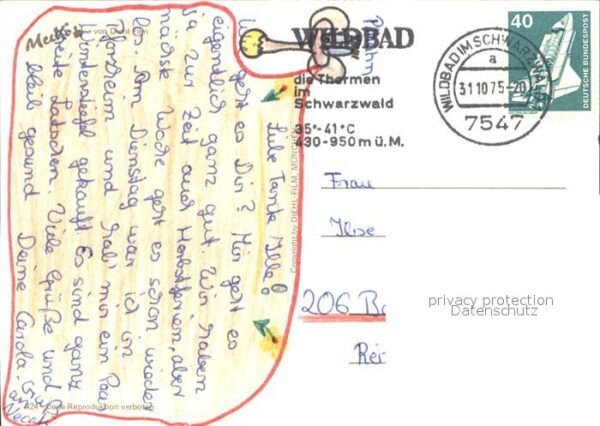 Mecki® von Diehl-Film
WILDBAD
die Thermen
im
Schwarzwald
35°-41°C
430-950 m ü.M.
WILDBAD IM SCHWARZWALD
a
31 10 75-20
7547
40
DEUTSCHE BUNDESPOST
Liebe Tante Ille!
Wie geht es Dir? Mir geht es
eigentlich ganz gut. Wir haben
ja zur Zeit auch Herbstferien, aber
nächste Woche geht es schon wieder
los. Am Dienstag war ich in
Pforzheim und hab mir ein Paar
Winterstiefel gekauft. Es sind ganz
Latschen. Viele Grüße und
bleib gesund Deine Carola
Gruß
an
Copyright by DIEHL-FILM, MÜNCHEN
424 Jede Reproduktion verboten
Frau
Ilse
206 B
Rei
privacy protection
Datenschutz